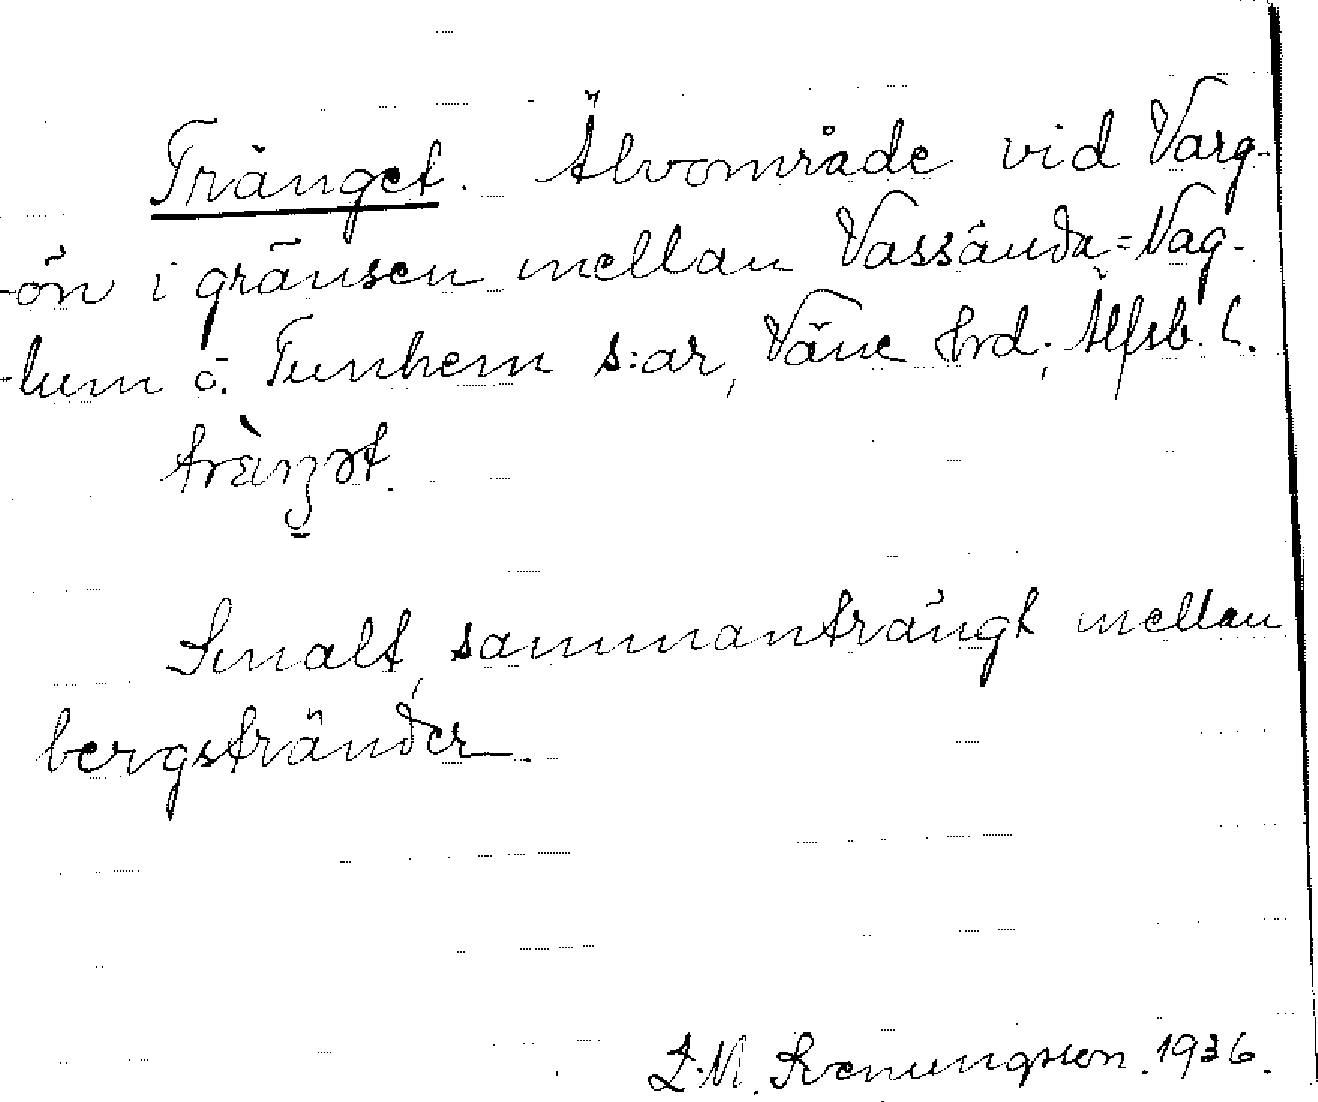 Tränget. Älvområde vid Varg-
-ön i gränsen mellan Vassända=Nag-
-lum o. Tunhem s:ar, Väne hrd, Älfsb. l.
Smalt, sammanträngt mellan
bergstränder.
Z.M. Svenungsson. 1936.